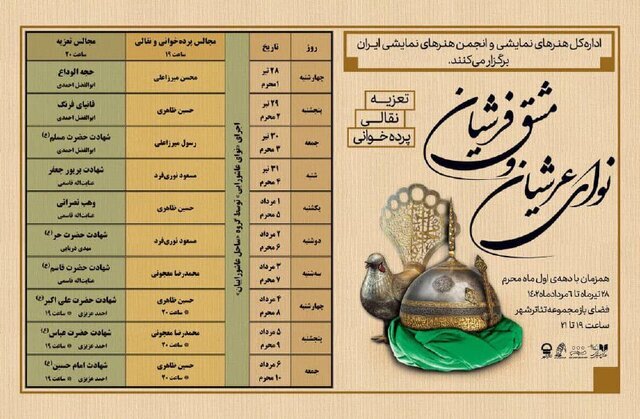 اداره‌کل هنرهای نمایشی و انجمن هنرهای نمایشی ایران
برگزار می‌کنند.
تعزیه
نقالی
پرده‌خوانی
مشق فرشیان
و
نوای عرشیان
همزمان با دهه‌ی اول ماه محرم
۲۸ تیرماه تا ۶ مردادماه ۱۴۰۲
فضای باز مجموعه تئاترشهر
ساعت ۱۹ تا ۲۱
روز
تاریخ
مجالس پرده‌خوانی و نقالی
ساعت ۱۹
مجالس تعزیه
ساعت ۲۰
اجرای «نوای عاشورایی» توسط گروه «ساحل عاشوراییان»
چهارشنبه
۲۸ تیر
۱ محرم
محسن میرزاعلی
حجه الوداع
ابوالفضل احمدی
پنجشنبه
۲۹ تیر
۲ محرم
حسین طاهری
قانیای فرنگ
ابوالفضل احمدی
جمعه
۳۰ تیر
۳ محرم
رسول میرزاعلی
شهادت حضرت مسلم (ع)
ابوالفضل احمدی
شنبه
۳۱ تیر
۴ محرم
مسعود نوری‌فرد
شهادت پرپور جعفر
عنایت‌اله قاسمی
یکشنبه
۱ مرداد
۵ محرم
حسین طاهری
وهب نصرانی
عنایت‌اله قاسمی
دوشنبه
۲ مرداد
۶ محرم
مسعود نوری‌فرد
شهادت حضرت حر (ع)
مهدی دریایی
سه‌شنبه
۳ مرداد
۷ محرم
محمدرضا معجونی
شهادت حضرت قاسم (ع)
عنایت‌اله قاسمی
چهارشنبه
۴ مرداد
۸ محرم
حسین طاهری
* ساعت ۲۰
شهادت حضرت علی اکبر (ع)
احمد عزیزی * ساعت ۱۹
پنجشنبه
۵ مرداد
۹ محرم
محمدرضا معجونی
* ساعت ۲۰
شهادت حضرت عباس (ع)
احمد عزیزی * ساعت ۱۹
جمعه
۶ مرداد
۱۰ محرم
حسین طاهری
* ساعت ۲۰
شهادت امام حسین (ع)
احمد عزیزی * ساعت ۱۹